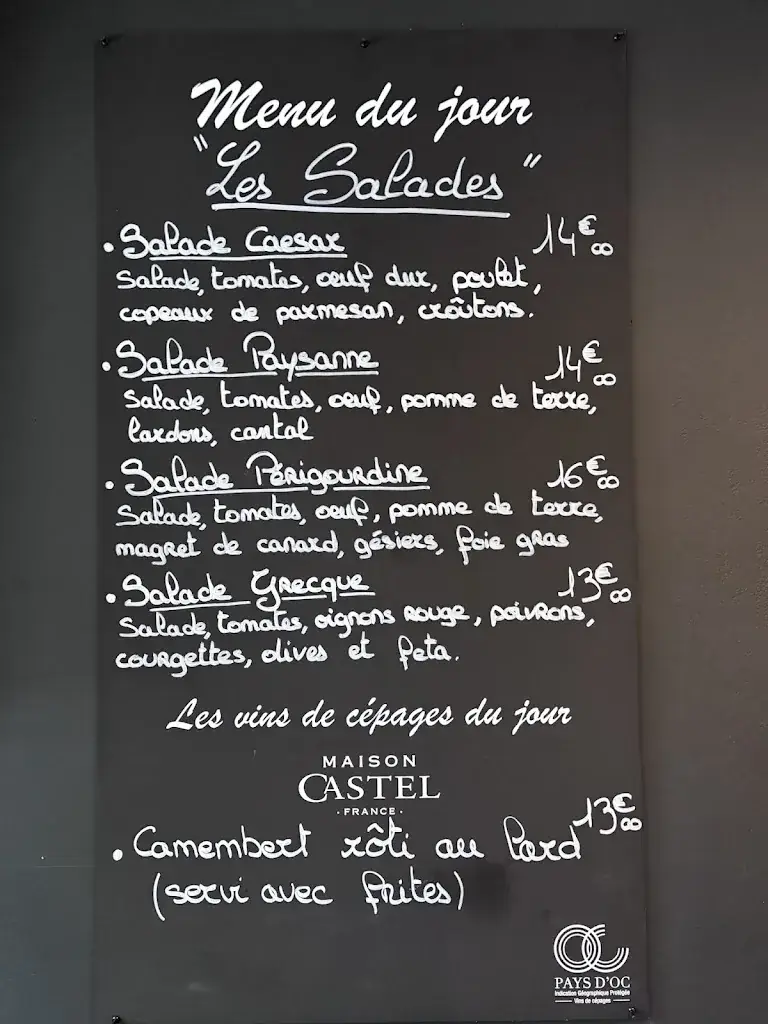 Menu du jour
"Les Salades"
• Salade Caesar 14€00
Salade, tomates, oeuf dur, poulet,
copeaux de parmesan, croûtons.
• Salade Paysanne 14€00
Salade, tomates, oeuf, pomme de terre,
lardons, cantal
• Salade Périgourdine 16€00
Salade, tomates, oeuf, pomme de terre,
magret de canard, gésiers, foie gras
• Salade Grecque 13€00
Salade, tomates, oignons rouge, poivrons,
courgettes, olives et feta.
Les vins de cépages du jour
MAISON
CASTEL
· FRANCE ·
• Camembert rôti au lard 13€00
(servi avec frites)
OC
PAYS D'OC
Indication Géographique Protégée
Vins de cépages